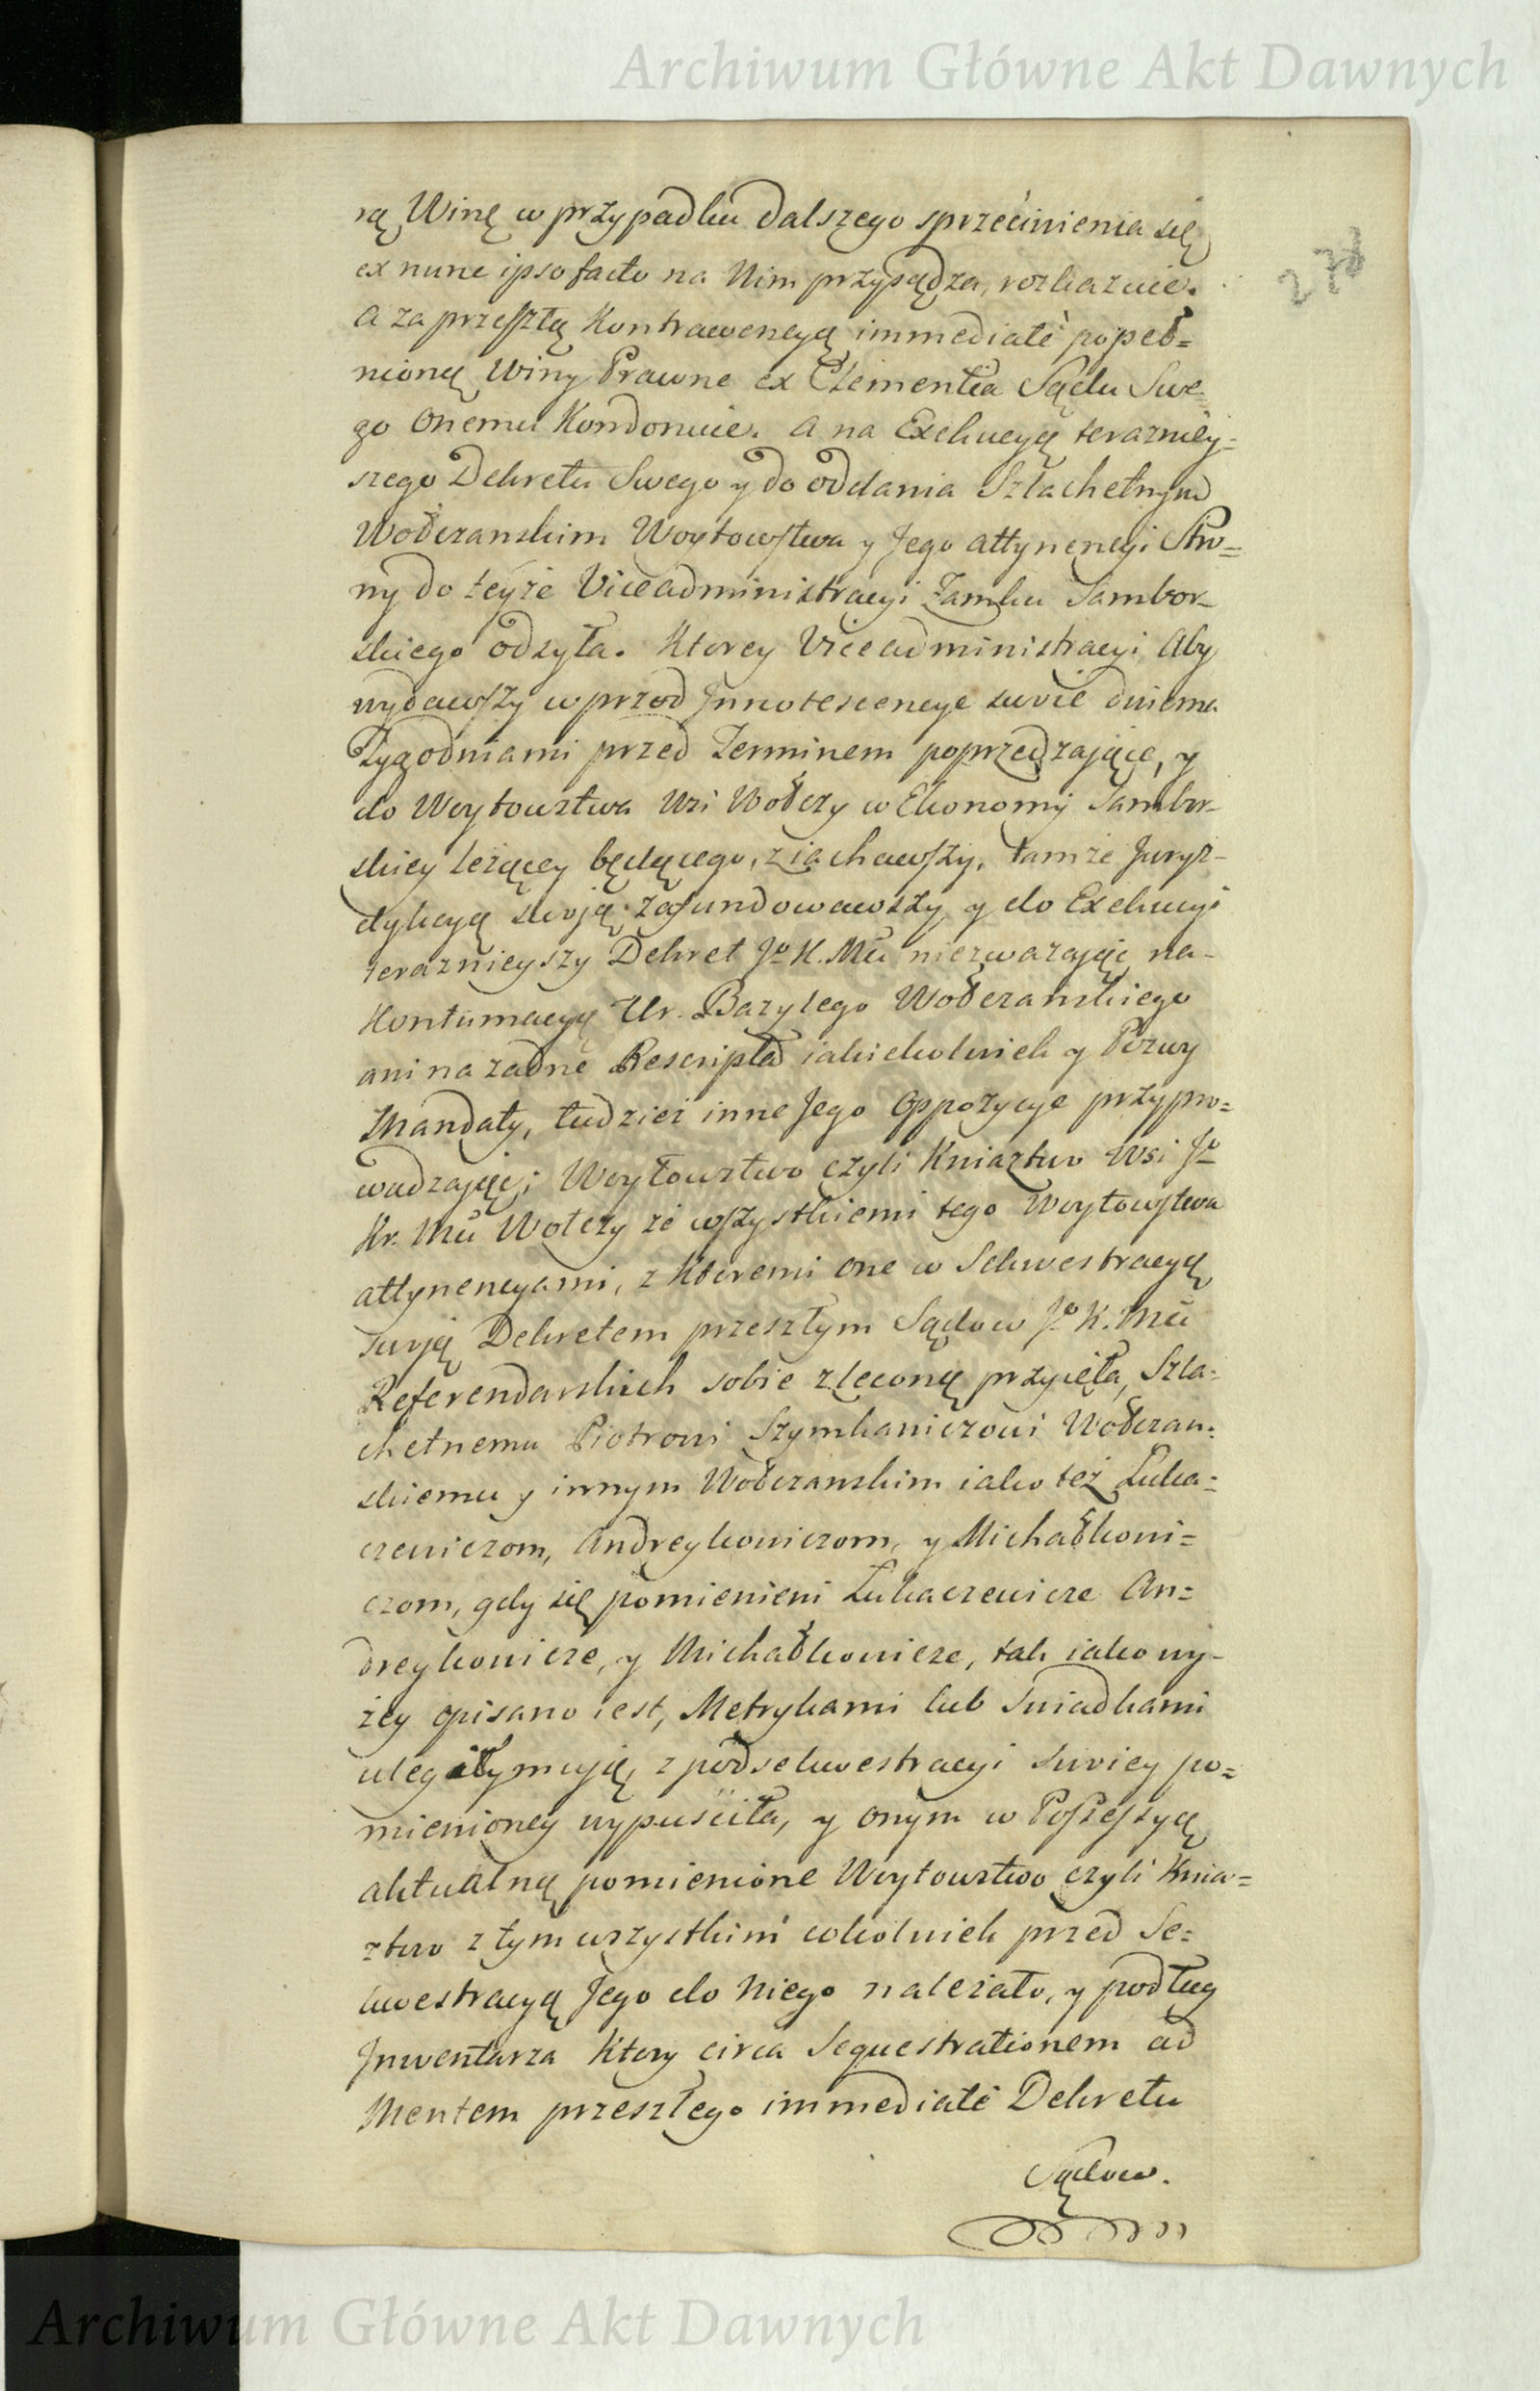 Archiwum Główne Akt Dawnych
rą Winę w przypadku dalszego sprzećiwienia się
ex nunc ipso facto na Nim przysądza, rozkazuie.
A za przeszłą Kontrawencyą immediatè popeł=
nioną Winy Prawne ex Clementia Sądu Swe=
go Onemu Kondonuie. A na Exekucyą terazniey=
szego Dekretu Swego y do oddania Szlachetnym
Wołczanskim Woytowstwa y Jego attynencyi Stro=
ny do teyże Viceadministracyi Zamku Sambor-
skiego odsyła. Ktorey Viceadministracyi, Aby
wydawszy wprzod Jnnotescencye swoie dwiema
Tygodniami przed Terminem poprzedzaiące, y
do Woytowstwa Wsi Wołczy w Ekonomij Sambor-
skiey leżącey będącego, ziachawszy, tamże Jurys-
dykcyą swoją zafundowawszy y do Exekucyi
terazniejszy Dekret Jo K. Mći niezwazając na-
Kontumacyą Ur. Bazylego Wołczanskiego
ani na żadne Rescripta iakiekolwiek y Pozwy
Mandaty, tudzież inne Jego Oppozycye przypro=
wadzając; Woytowstwo czyli Kniaztwo Wsi Jo
Kr. Mći Wołczy zé wszystkiemi tego Woytowstwa
attynencyami, z Ktoremi one w Sekwestracyą
swoją Dekretem przeszłym Sądow Jo K. Mći
Referendarskich sobie zleconą przyięła, Szla=
chetnemu Piotrowi Szymkaniczowi Wołczan=
skiemu y innym Wołczanskim iako też Luka=
czewiczom, Andreykowiczom, y Michałkowi=
czom, gdy się pomienieni Lukaczewicze An=
dreykowicze, y Michałkowicze, tak iako wy-
żey opisano iest, Metrykami lub Swiadkami
ulegitymują, z pod sekwestracyi swoiey po=
mienioney wypuściła, y onym w Possessyą
aktualną pomienione Woytowstwo czyli Knia=
ztwo z tym wszystkim cokolwiek przed Se=
kwestracyą Jego do Niego należało, y podług
Jnwentarza Ktory circa Sequestrationem ad
Mentem przeszłego immediatè Dekretu
Sądow.
Archiwum Główne Akt Dawnych